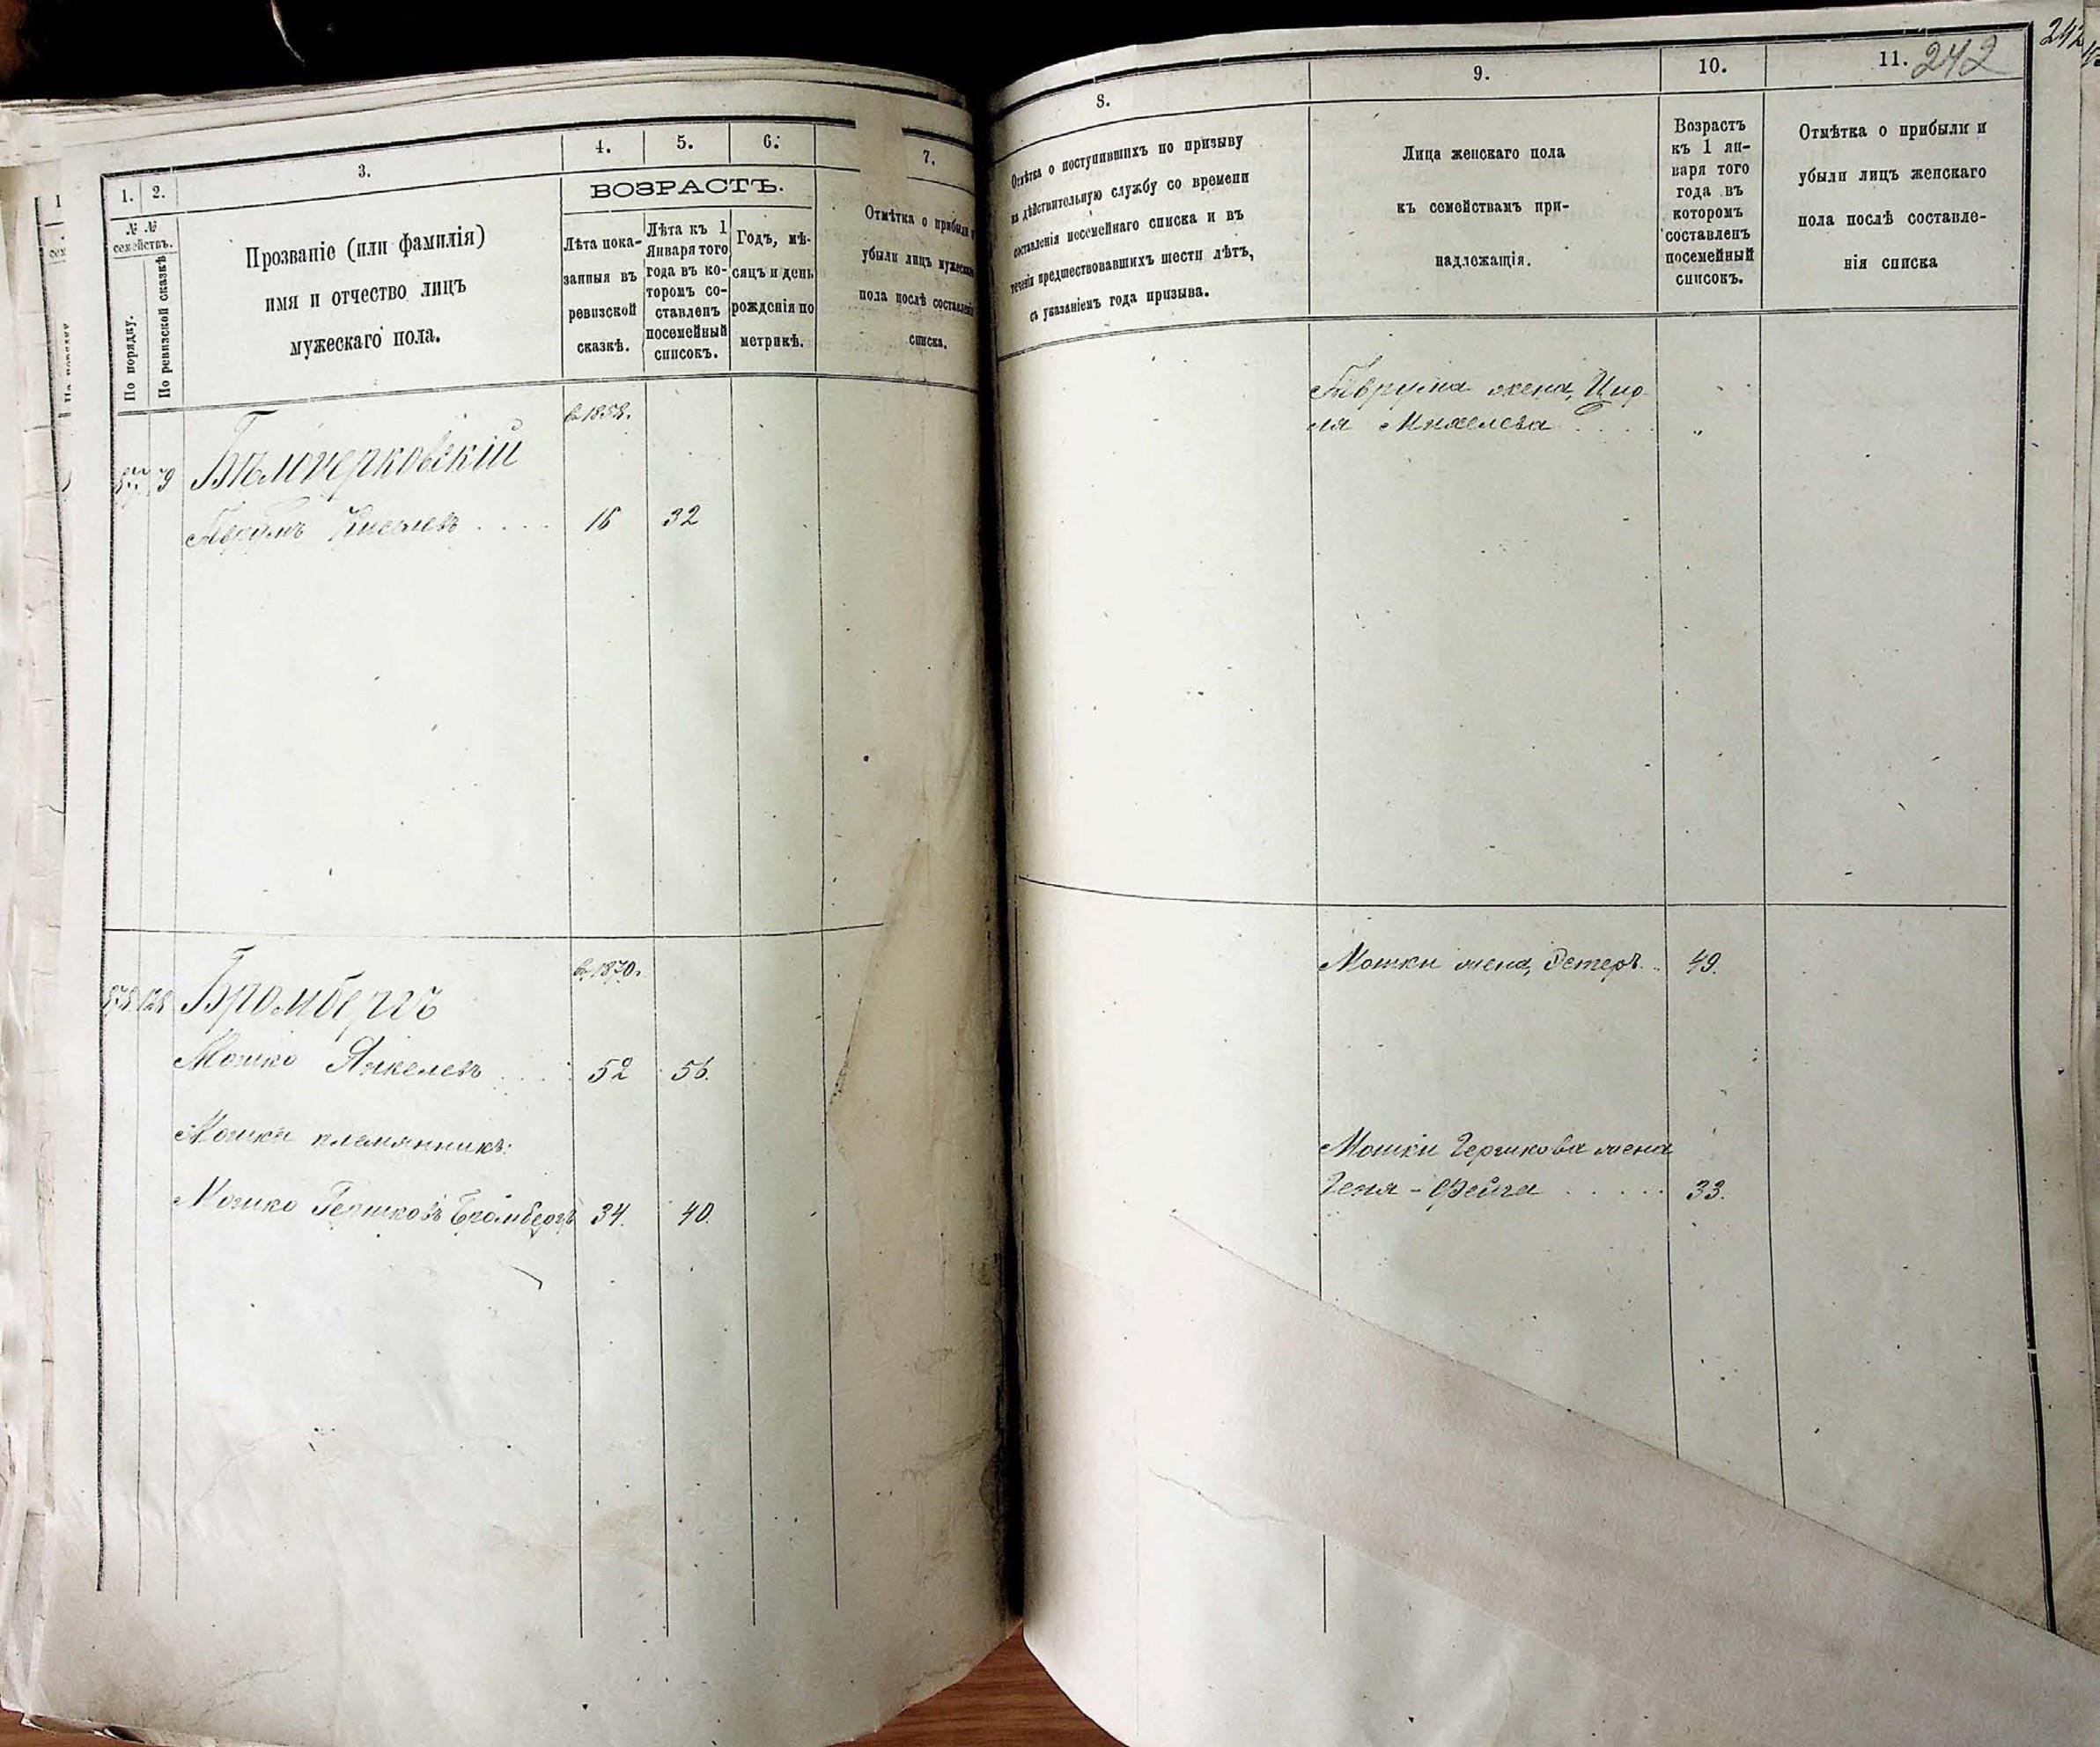 1.
2.
3.
4.
5.
6.
7.
№ №
семействъ.
По порядку.
По ревизской сказкѣ
Прозваніе (или фамилія)
имя и отчество лицъ
мужескаго пола.
ВОЗРАСТЪ.
Лѣта пока-
занныя въ
ревизской
сказкѣ.
Лѣта къ 1
Января того
года въ ко-
торомъ со-
ставленъ
посемейный
списокъ.
Годъ, мѣ-
сяцъ и день
рожденія по
метрикѣ.
Отмѣтка о прибыли и
убыли лицъ мужескаго
пола послѣ составленія
списка.
въ 1858.
79 Бѣлоцерковскій
Аврумъ .... 16 32
въ 1870.
128 Бромбергъ
Мошко Янкелевъ .... 52 56.
Мошки племянникъ:
Мошко Гершковъ Бромбергъ 34. 40.
8.
9.
10.
11.
242
242
Отмѣтка о поступившихъ по призыву
на дѣйствительную службу со времени
составленія посемейнаго списка и въ
теченіи предшествовавшихъ шести лѣтъ,
съ указаніемъ года призыва.
Лица женскаго пола
къ семействамъ при-
надлежащія.
Возрастъ
къ 1 ян-
варя того
года въ
которомъ
составленъ
посемейный
списокъ.
Отмѣтка о прибыли и
убыли лицъ женскаго
пола послѣ составле-
нія списка
Аврума жена, Цир-
ля Михелева .... "
Мошки жена, Эстеръ .. 49.
Мошки Гершкова жена
Геня-Фейга ..... 33.